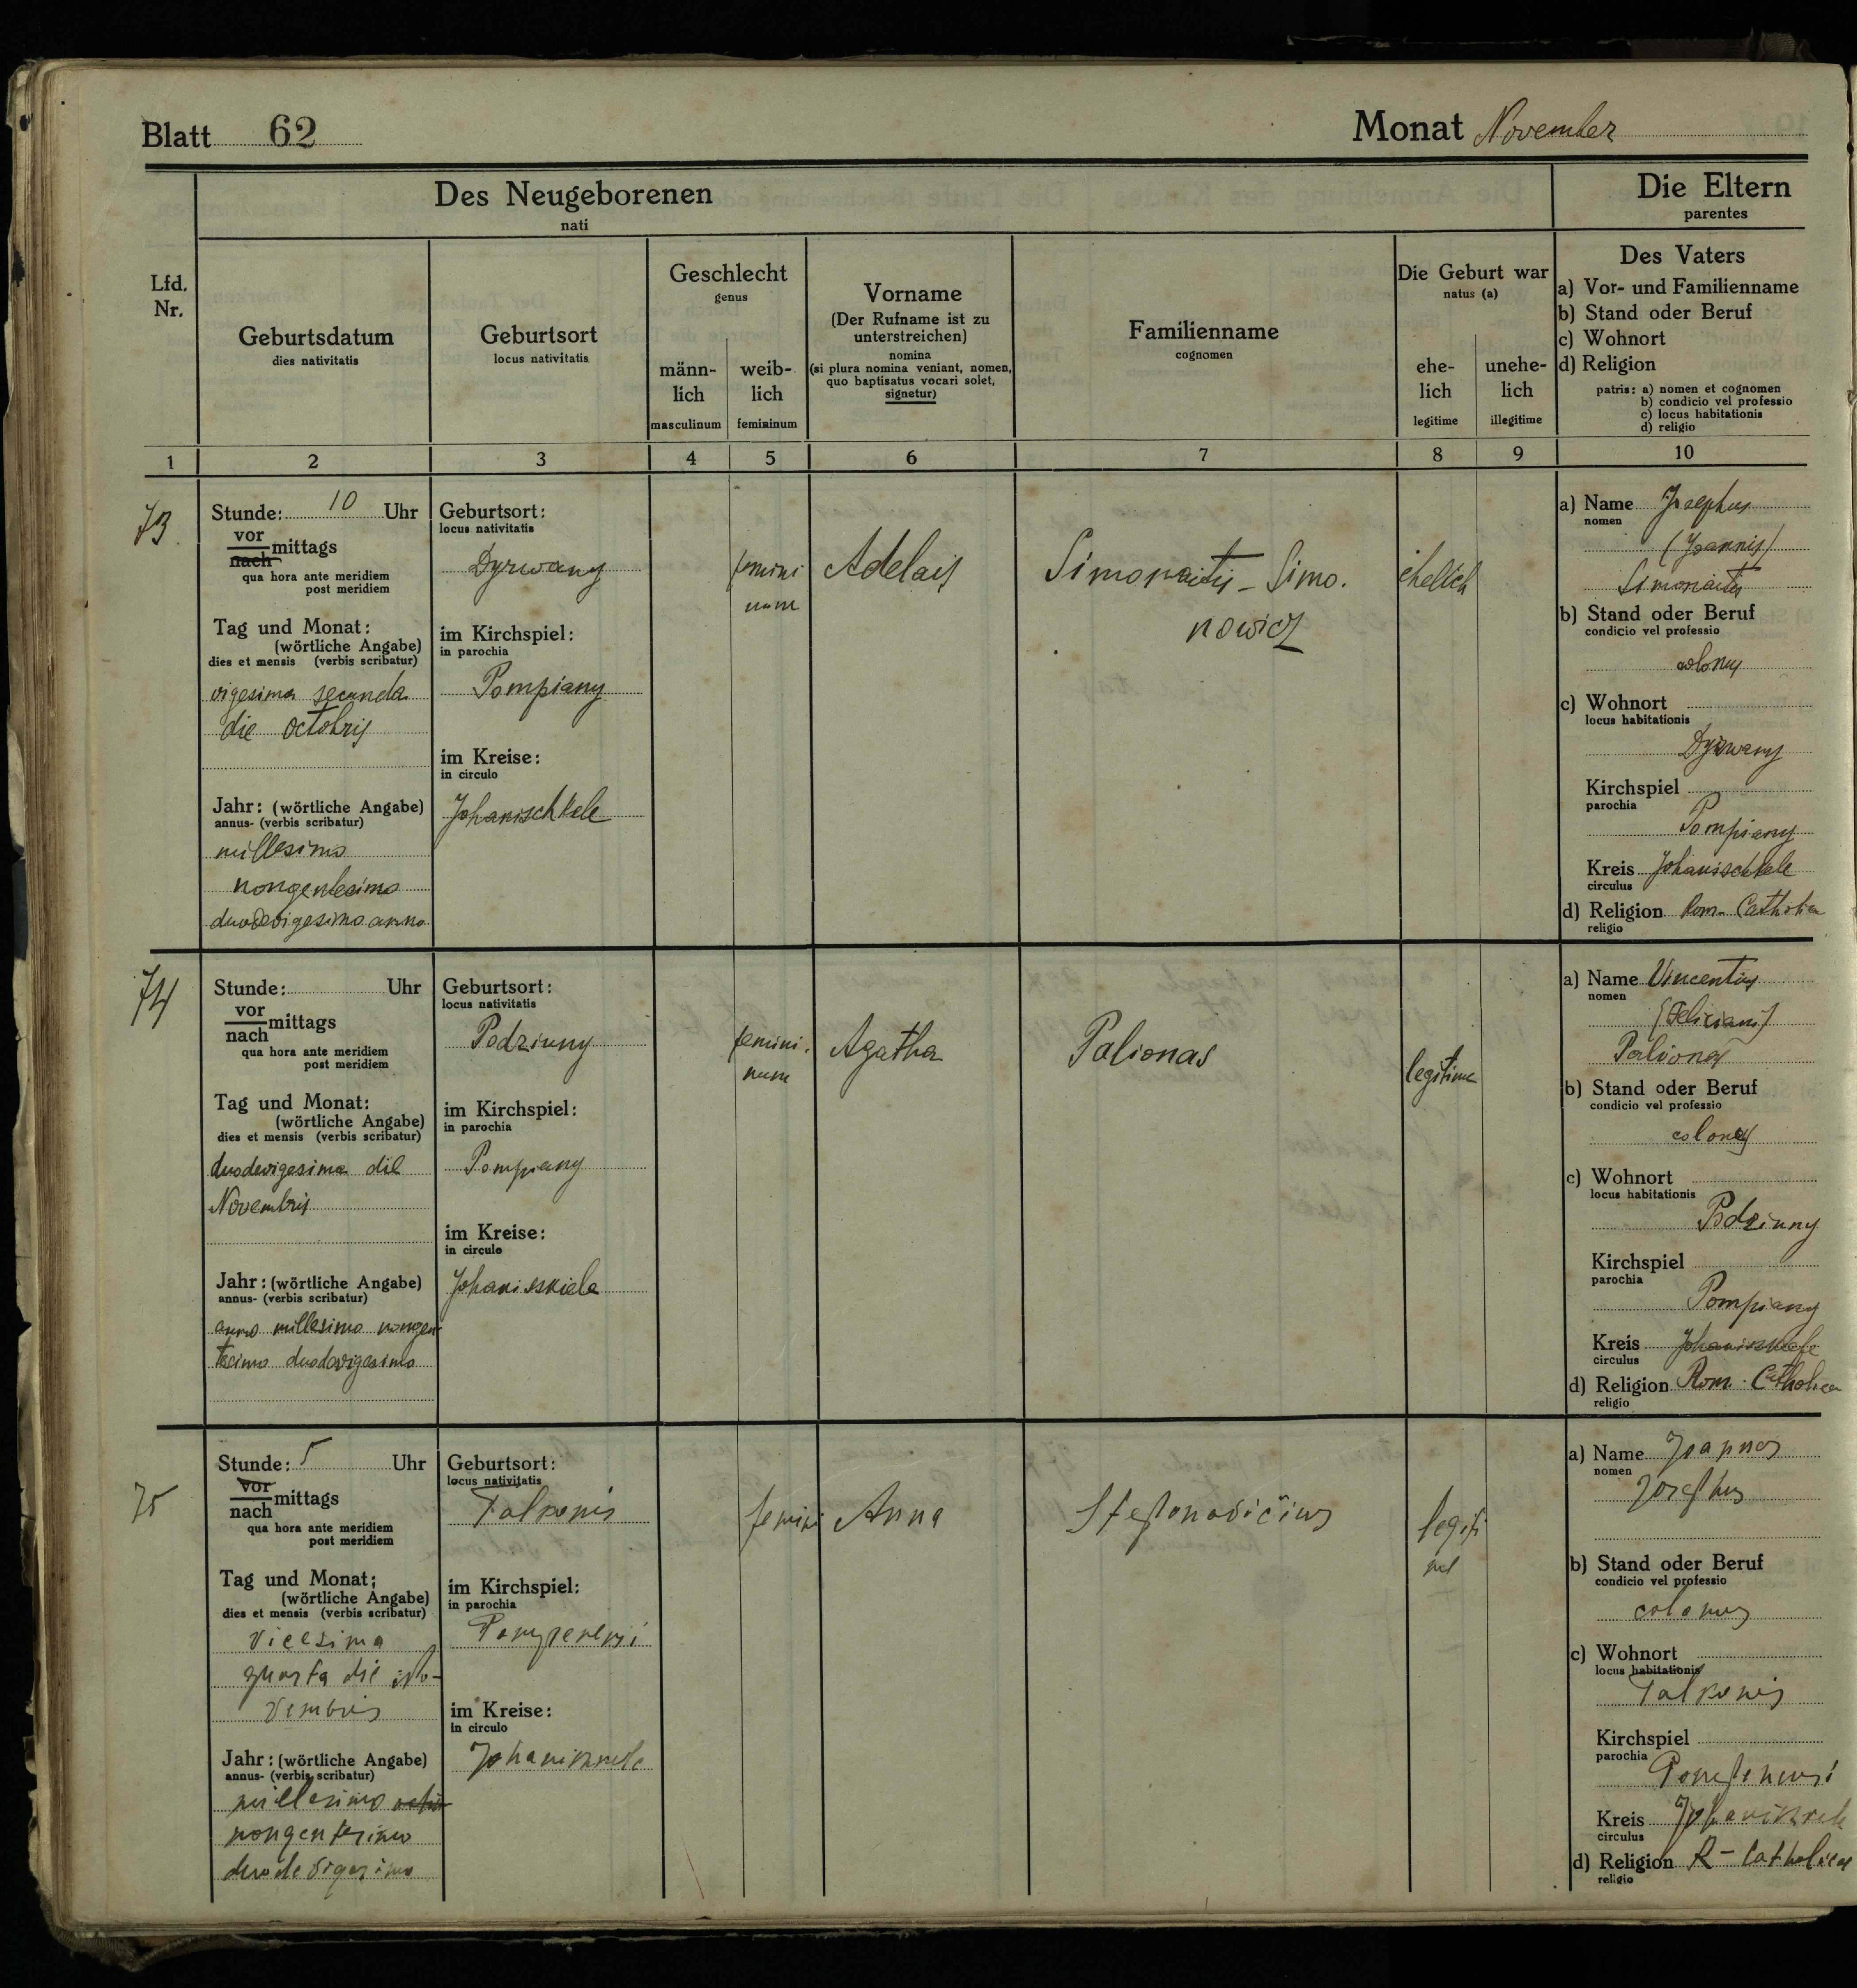 Blatt 62
Monat November
Des Neugeborenen
nati
Die Eltern
parentes
Lfd.
Nr.
Geburtsdatum
dies nativitatis
Geburtsort
locus nativitatis
Geschlecht
genus
männ-
lich
masculinum
weib-
lich
femininum
Vorname
(Der Rufname ist zu
unterstreichen)
nomina
(si plura nomina veniant, nomen,
quo baptisatus vocari solet,
signetur)
Familienname
cognomen
Die Geburt war
natus (a)
ehe-
lich
legitime
unehe-
lich
illegitime
Des Vaters
a) Vor- und Familienname
b) Stand oder Beruf
c) Wohnort
d) Religion
patris: a) nomen et cognomen
b) condicio vel professio
c) locus habitationis
d) religio
1 2 3 4 5 6 7 8 9 10
73
Stunde: 10 Uhr
vor
nach mittags
qua hora ante meridiem
post meridiem
Tag und Monat:
(wörtliche Angabe)
dies et mensis (verbis scribatur)
vigesima secunda
die octobris
Jahr: (wörtliche Angabe)
annus- (verbis scribatur)
millesimo
nongentesimo
duodevigesimo anno
Geburtsort:
locus nativitatis
Dyrwany
im Kirchspiel:
in parochia
Pompiany
im Kreise:
in circulo
Johanischkele
femini
num
Adelais
Simonaitis - Simo.
nowicz
ehelich
a) Name Josephus
nomen
(Joannis)
Simonaitis
b) Stand oder Beruf
condicio vel professio
colonus
c) Wohnort
locus habitationis
Dyrwany
Kirchspiel
parochia
Pompiany
Kreis Johanischkele
circulus
d) Religion Rom. Catholica
religio
74
Stunde: Uhr
vor
nach mittags
qua hora ante meridiem
post meridiem
Tag und Monat:
(wörtliche Angabe)
dies et mensis (verbis scribatur)
duodevigesima die
Novembris
Jahr: (wörtliche Angabe)
annus- (verbis scribatur)
anno millesimo nongen
tesimo duodevigesimo
Geburtsort:
locus nativitatis
Podziuny
im Kirchspiel:
in parochia
Pompiany
im Kreise:
in circulo
Johaniskiele
femini.
num
Agatha
Palionas
legitime
a) Name Vincentius
nomen
(Feliciani)
Palionas
b) Stand oder Beruf
condicio vel professio
colonus
c) Wohnort
locus habitationis
Podziuny
Kirchspiel
parochia
Pompiany
Kreis Johaniskiele
circulus
d) Religion Rom. Catholica
religio
75
Stunde: 5 Uhr
vor
nach mittags
qua hora ante meridiem
post meridiem
Tag und Monat:
(wörtliche Angabe)
dies et mensis (verbis scribatur)
vicesima
quarta die No-
vembris
Jahr: (wörtliche Angabe)
annus- (verbis scribatur)
millesimo
nongentesimo
duodevigesimo
Geburtsort:
locus nativitatis
Talkonis
im Kirchspiel:
in parochia
im Kreise:
in circulo
femini
Anna
Steponavičius
legiti
me
a) Name Joannes
nomen
Josephus
b) Stand oder Beruf
condicio vel professio
colonus
c) Wohnort
locus habitationis
Talkonis
Kirchspiel
parochia
Kreis
circulus
d) Religion R - Catholica
religio